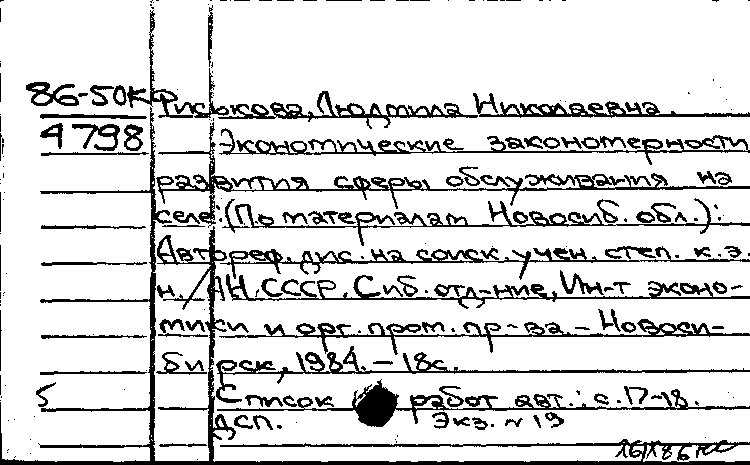 86-50К Фиськова, Людмила Николаевна.
4798 Экономические закономерности
развития сферы обслуживания на
селе: (По материалам Новосиб. обл.):
Автореф. дис. на соиск. учен. степ. к. э.
н. / АН СССР. Сиб. отд-ние, Ин-т эконо-
мики и орг. пром. пр-ва. - Новоси-
бирск, 1984. - 18с.
5 Список работ авт.: с. 17-18.
ДСП. Экз. N 19